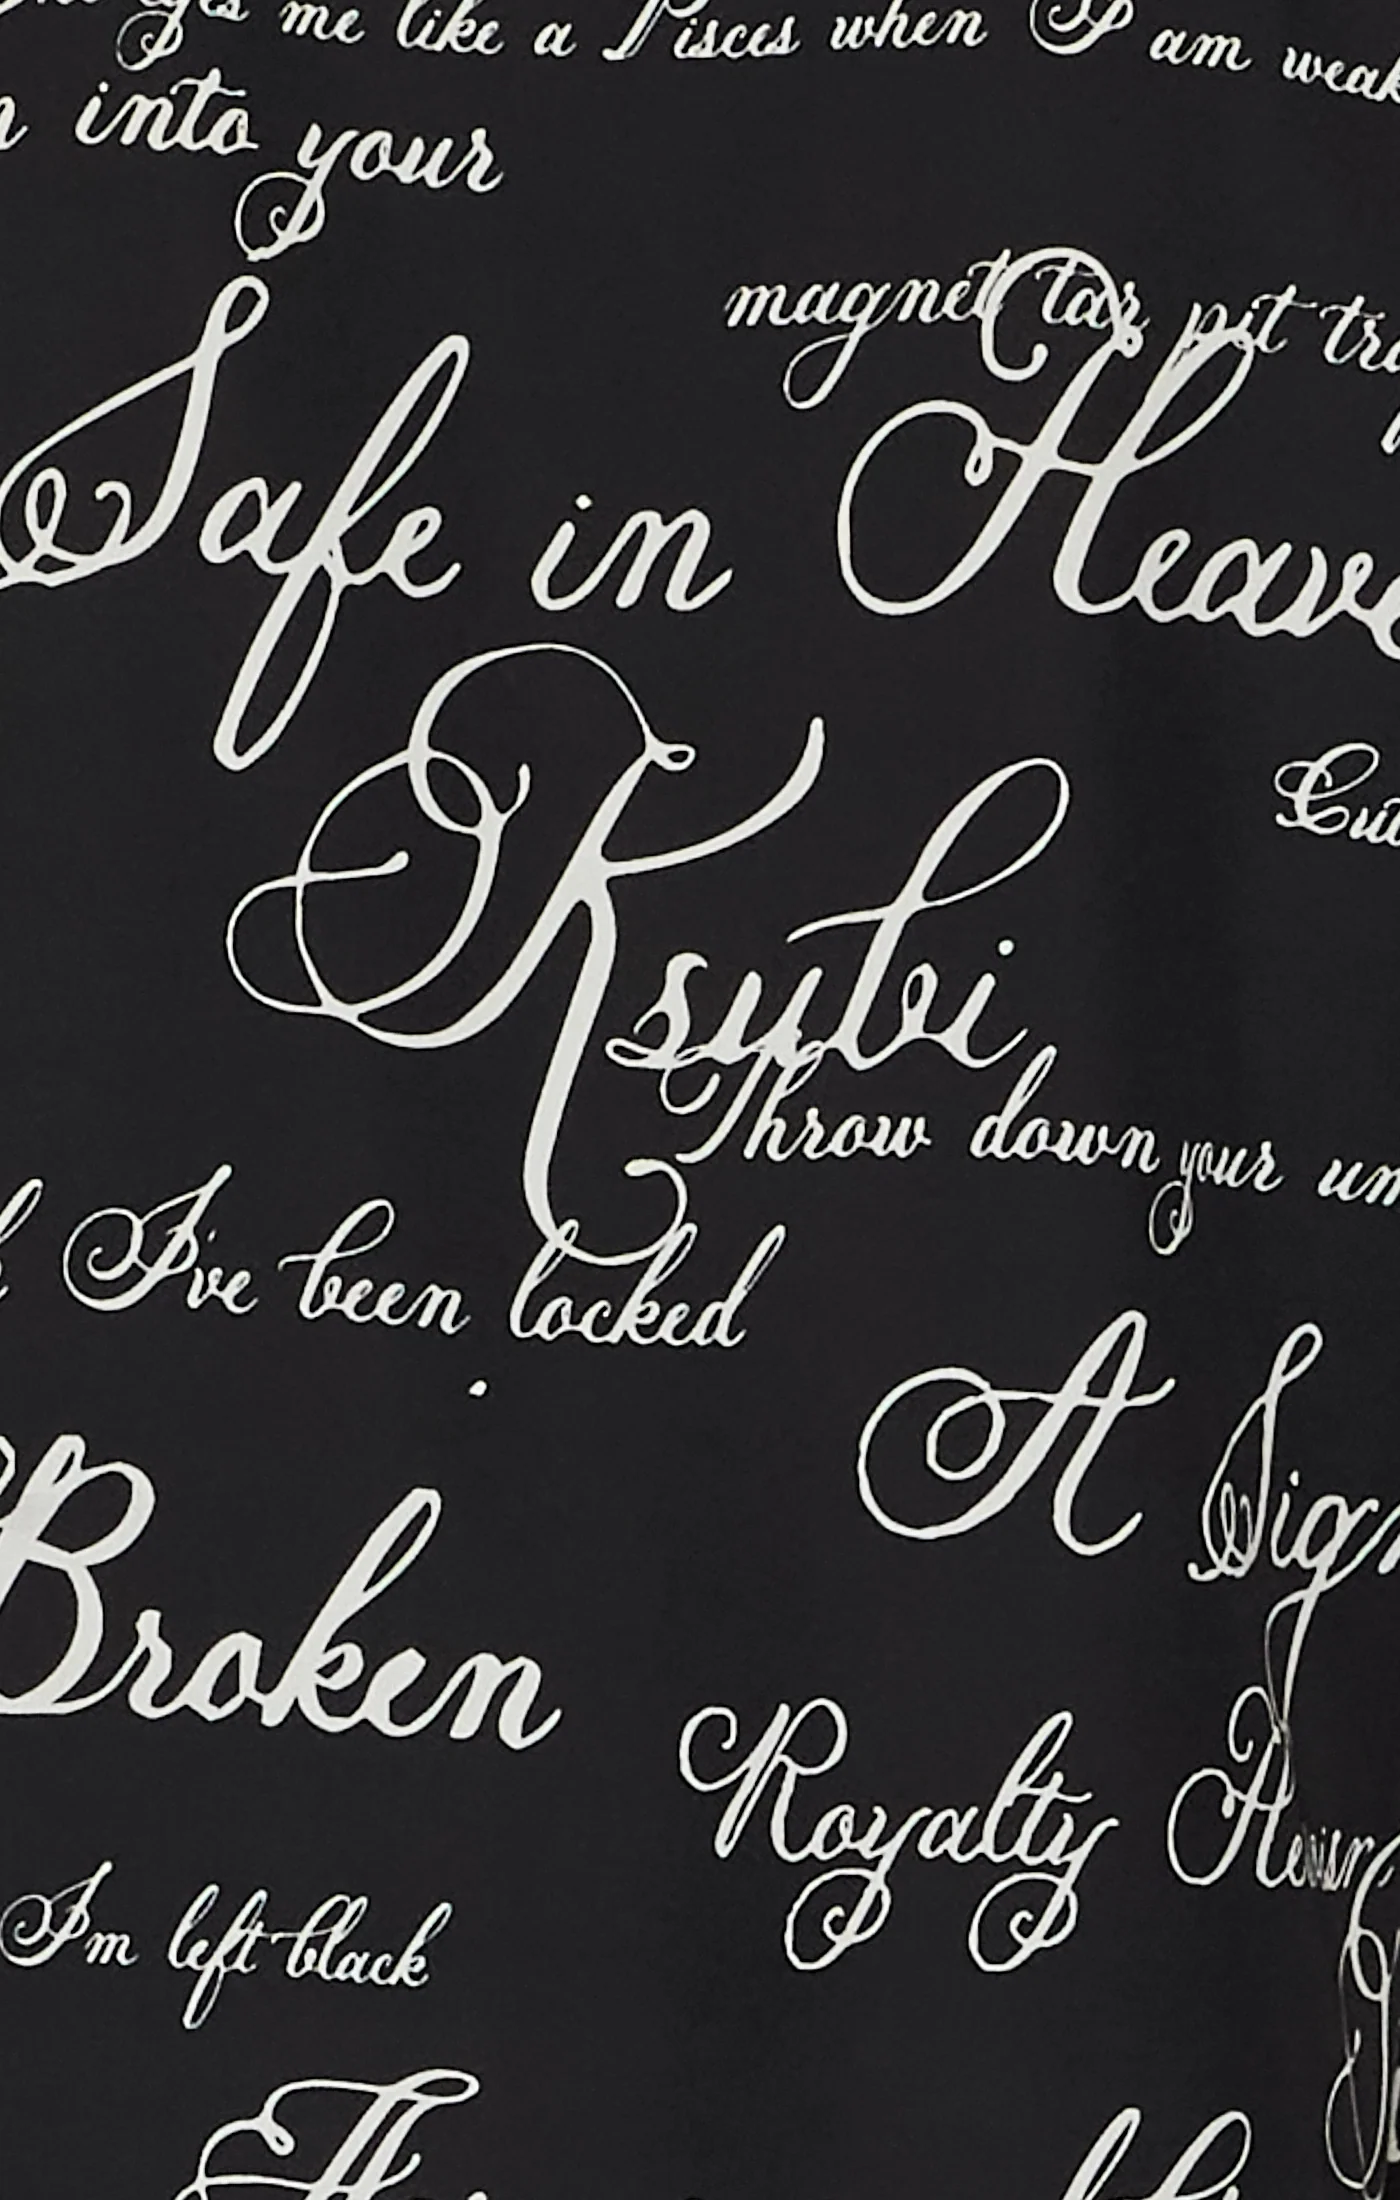 eyes me like a Pisces when I am weak
into your
magnet tar pit
Safe in
Ksubi
Throw down your
I've been locked
A
Broken
Royalty
I'm left black